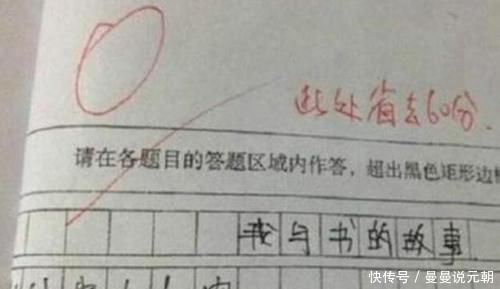 0
此处省去60分.
请在各题目的答题区域内作答，超出黑色矩形边
我与书的故事
快传号／曼曼说元朝